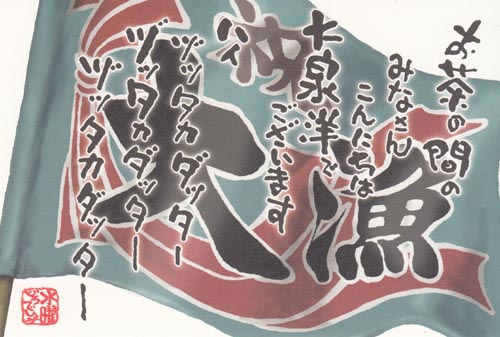 お茶の間の
みなさん
こんにちは
大泉洋で
ございます
ハイ
ヅッタカダッター
ヅッタカダッター
ヅッタカダッター
大漁
水曜